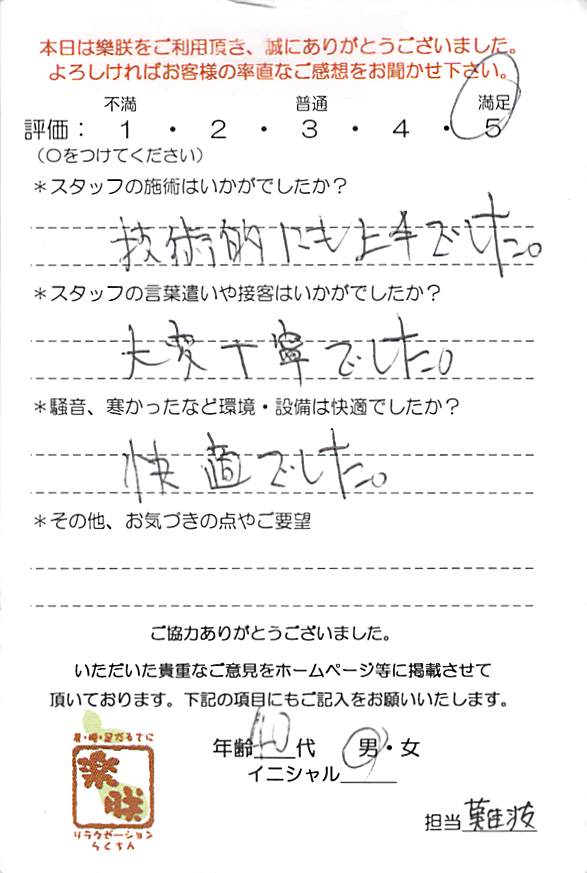 本日は樂朕をご利用頂き、誠にありがとうございました。
よろしければお客様の率直なご感想をお聞かせ下さい。
不満 普通 満足
評価： 1 ・ 2 ・ 3 ・ 4 ・ 5
（〇をつけてください）
＊スタッフの施術はいかがでしたか？
技術的にも上手でした。
＊スタッフの言葉遣いや接客はいかがでしたか？
大変丁寧でした。
＊騒音、寒かったなど環境・設備は快適でしたか？
快適でした。
＊その他、お気づきの点やご要望
ご協力ありがとうございました。
いただいた貴重なご意見をホームページ等に掲載させて
頂いております。下記の項目にもご記入をお願いいたします。
年齢 40 代 男・女
イニシャル
肩・腰・足だるてに
楽朕
リラクゼーション
らくちん
担当 難波